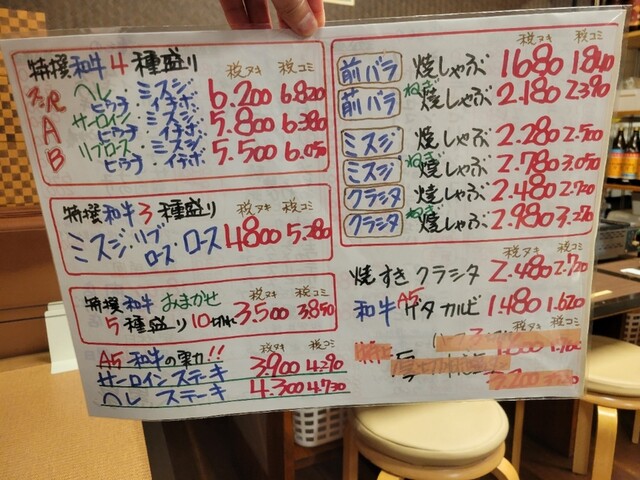 特撰和牛4種盛り 税ヌキ 税コミ
ヘレ・ミスジ
ヒウチ・イチボ 6.200 6.820
A サーロイン・ミスジ
ヒウチ・イチボ 5.800 6.380
B リブロース・ミスジ
ヒウチ・イチボ 5.500 6.050
特撰和牛3種盛り 税ヌキ 税コミ
ミスジ・リブロース・ロース 4.800 5.280
特撰和牛おまかせ 税ヌキ 税コミ
5種盛り10切れ 3.500 3.850
A5和牛の実力!! 税ヌキ 税コミ
サーロインステーキ 3.900 4.290
ヘレステーキ 4.300 4.730
税ヌキ 税コミ
前バラ 焼しゃぶ 1.680 1.840
前バラ ねぎ焼しゃぶ 2.180 2.390
ミスジ 焼しゃぶ 2.280 2.500
ミスジ ねぎ焼しゃぶ 2.780 3.050
クラシタ 焼しゃぶ 2.480 2.720
クラシタ ねぎ焼しゃぶ 2.980 3.270
税ヌキ 税コミ
焼すきクラシタ 2.480 2.720
和牛A5ゲタカルビ 1.480 1.620